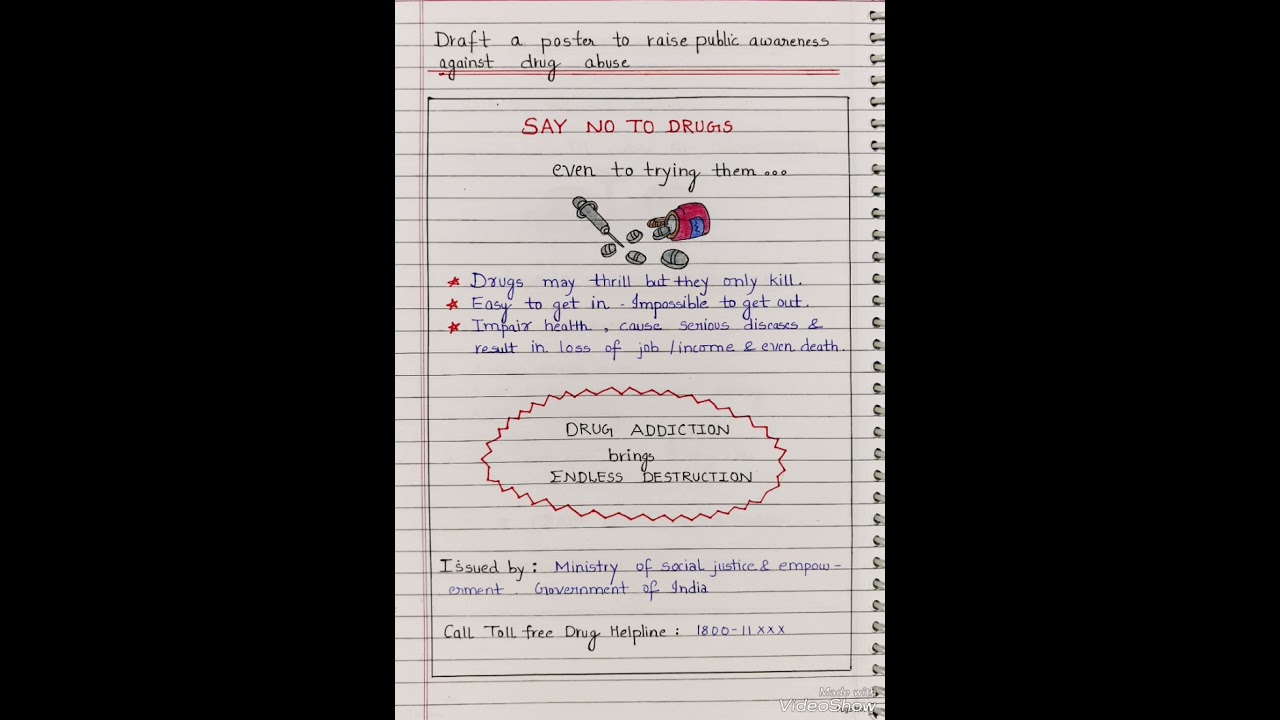 Draft a poster to raise public awareness
against drug abuse
SAY NO TO DRUGS
even to trying them...
★ Drugs may thrill but they only kill.
★ Easy to get in - Impossible to get out.
★ Impair health, cause serious diseases &
result in loss of job /income & even death.
DRUG ADDICTION
brings
ENDLESS DESTRUCTION
Issued by: Ministry of social justice & empow-
erment. Government of India
Call Toll free Drug Helpline: 1800-11xxx
Made with
VideoShow